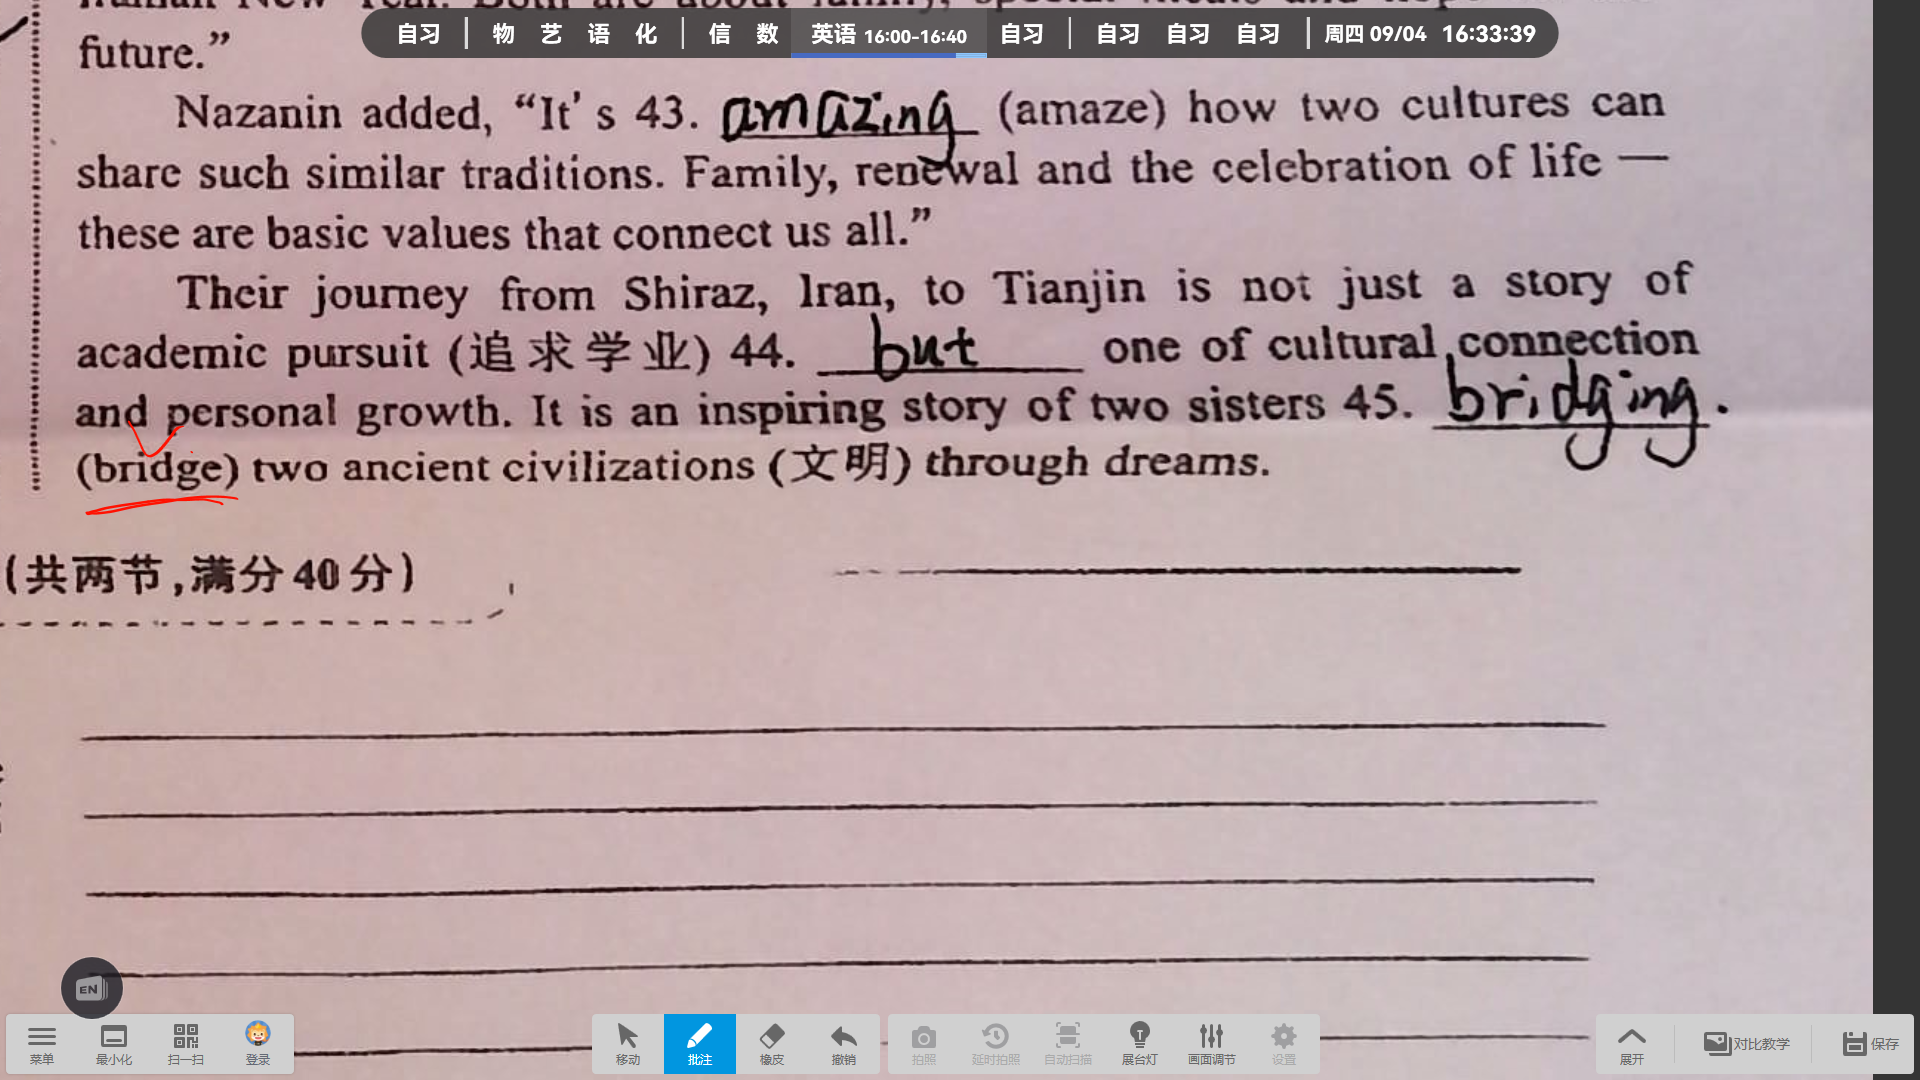 自习 | 物 艺 语 化 | 信 数 英语 16:00-16:40 自习 | 自习 自习 自习 | 周四 09/04 16:33:39
future.”
Nazanin added, “It's 43. amazing (amaze) how two cultures can
share such similar traditions. Family, renewal and the celebration of life —
these are basic values that connect us all.”
Their journey from Shiraz, Iran, to Tianjin is not just a story of
academic pursuit (追求学业) 44. but one of cultural connection
and personal growth. It is an inspiring story of two sisters 45. bridging.
(bridge) two ancient civilizations (文明) through dreams.
(共两节,满分40分)
EN
菜单 最小化 扫一扫 登录 移动 批注 橡皮 撤销 拍照 延时拍照 自动扫描 展台灯 画面调节 设置 展开 对比教学 保存